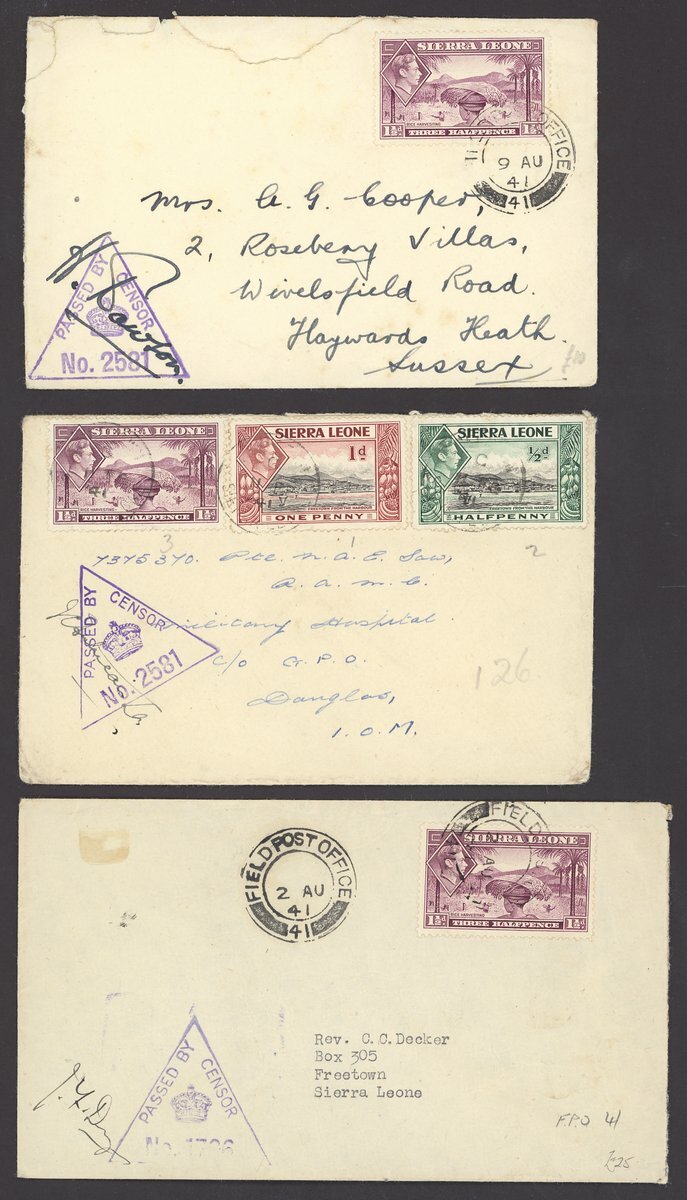 SIERRA LEONE
RICE HARVESTING
1½d THREE HALFPENCE 1½d
OFFICE
9 AU
41
41
Mrs. A. G. Cooper,
2, Rosebery Villas,
Wivelsfield Road.
Haywards Heath.
Sussex
PASSED BY CENSOR
No. 2581
£20
SIERRA LEONE
RICE HARVESTING
1½d THREE HALFPENCE 1½d
SIERRA LEONE
1d
FREETOWN FROM THE HARBOUR
ONE PENNY
SIERRA LEONE
½d
FREETOWN FROM THE HARBOUR
HALFPENNY
3
1
2
7375370. Pte. N.A.E. Saw,
R.A.M.C.
Military Hospital
c/o G.P.O.
Douglas,
I.O.M.
PASSED BY CENSOR
No. 2581
126
FIELD POST OFFICE
2 AU
41
41
FIELD
AU
SIERRA LEONE
RICE HARVESTING
1½d THREE HALFPENCE 1½d
Rev. C.C.Decker
Box 305
Freetown
Sierra Leone
PASSED BY CENSOR
No. 1786
F.P.O 41
£25